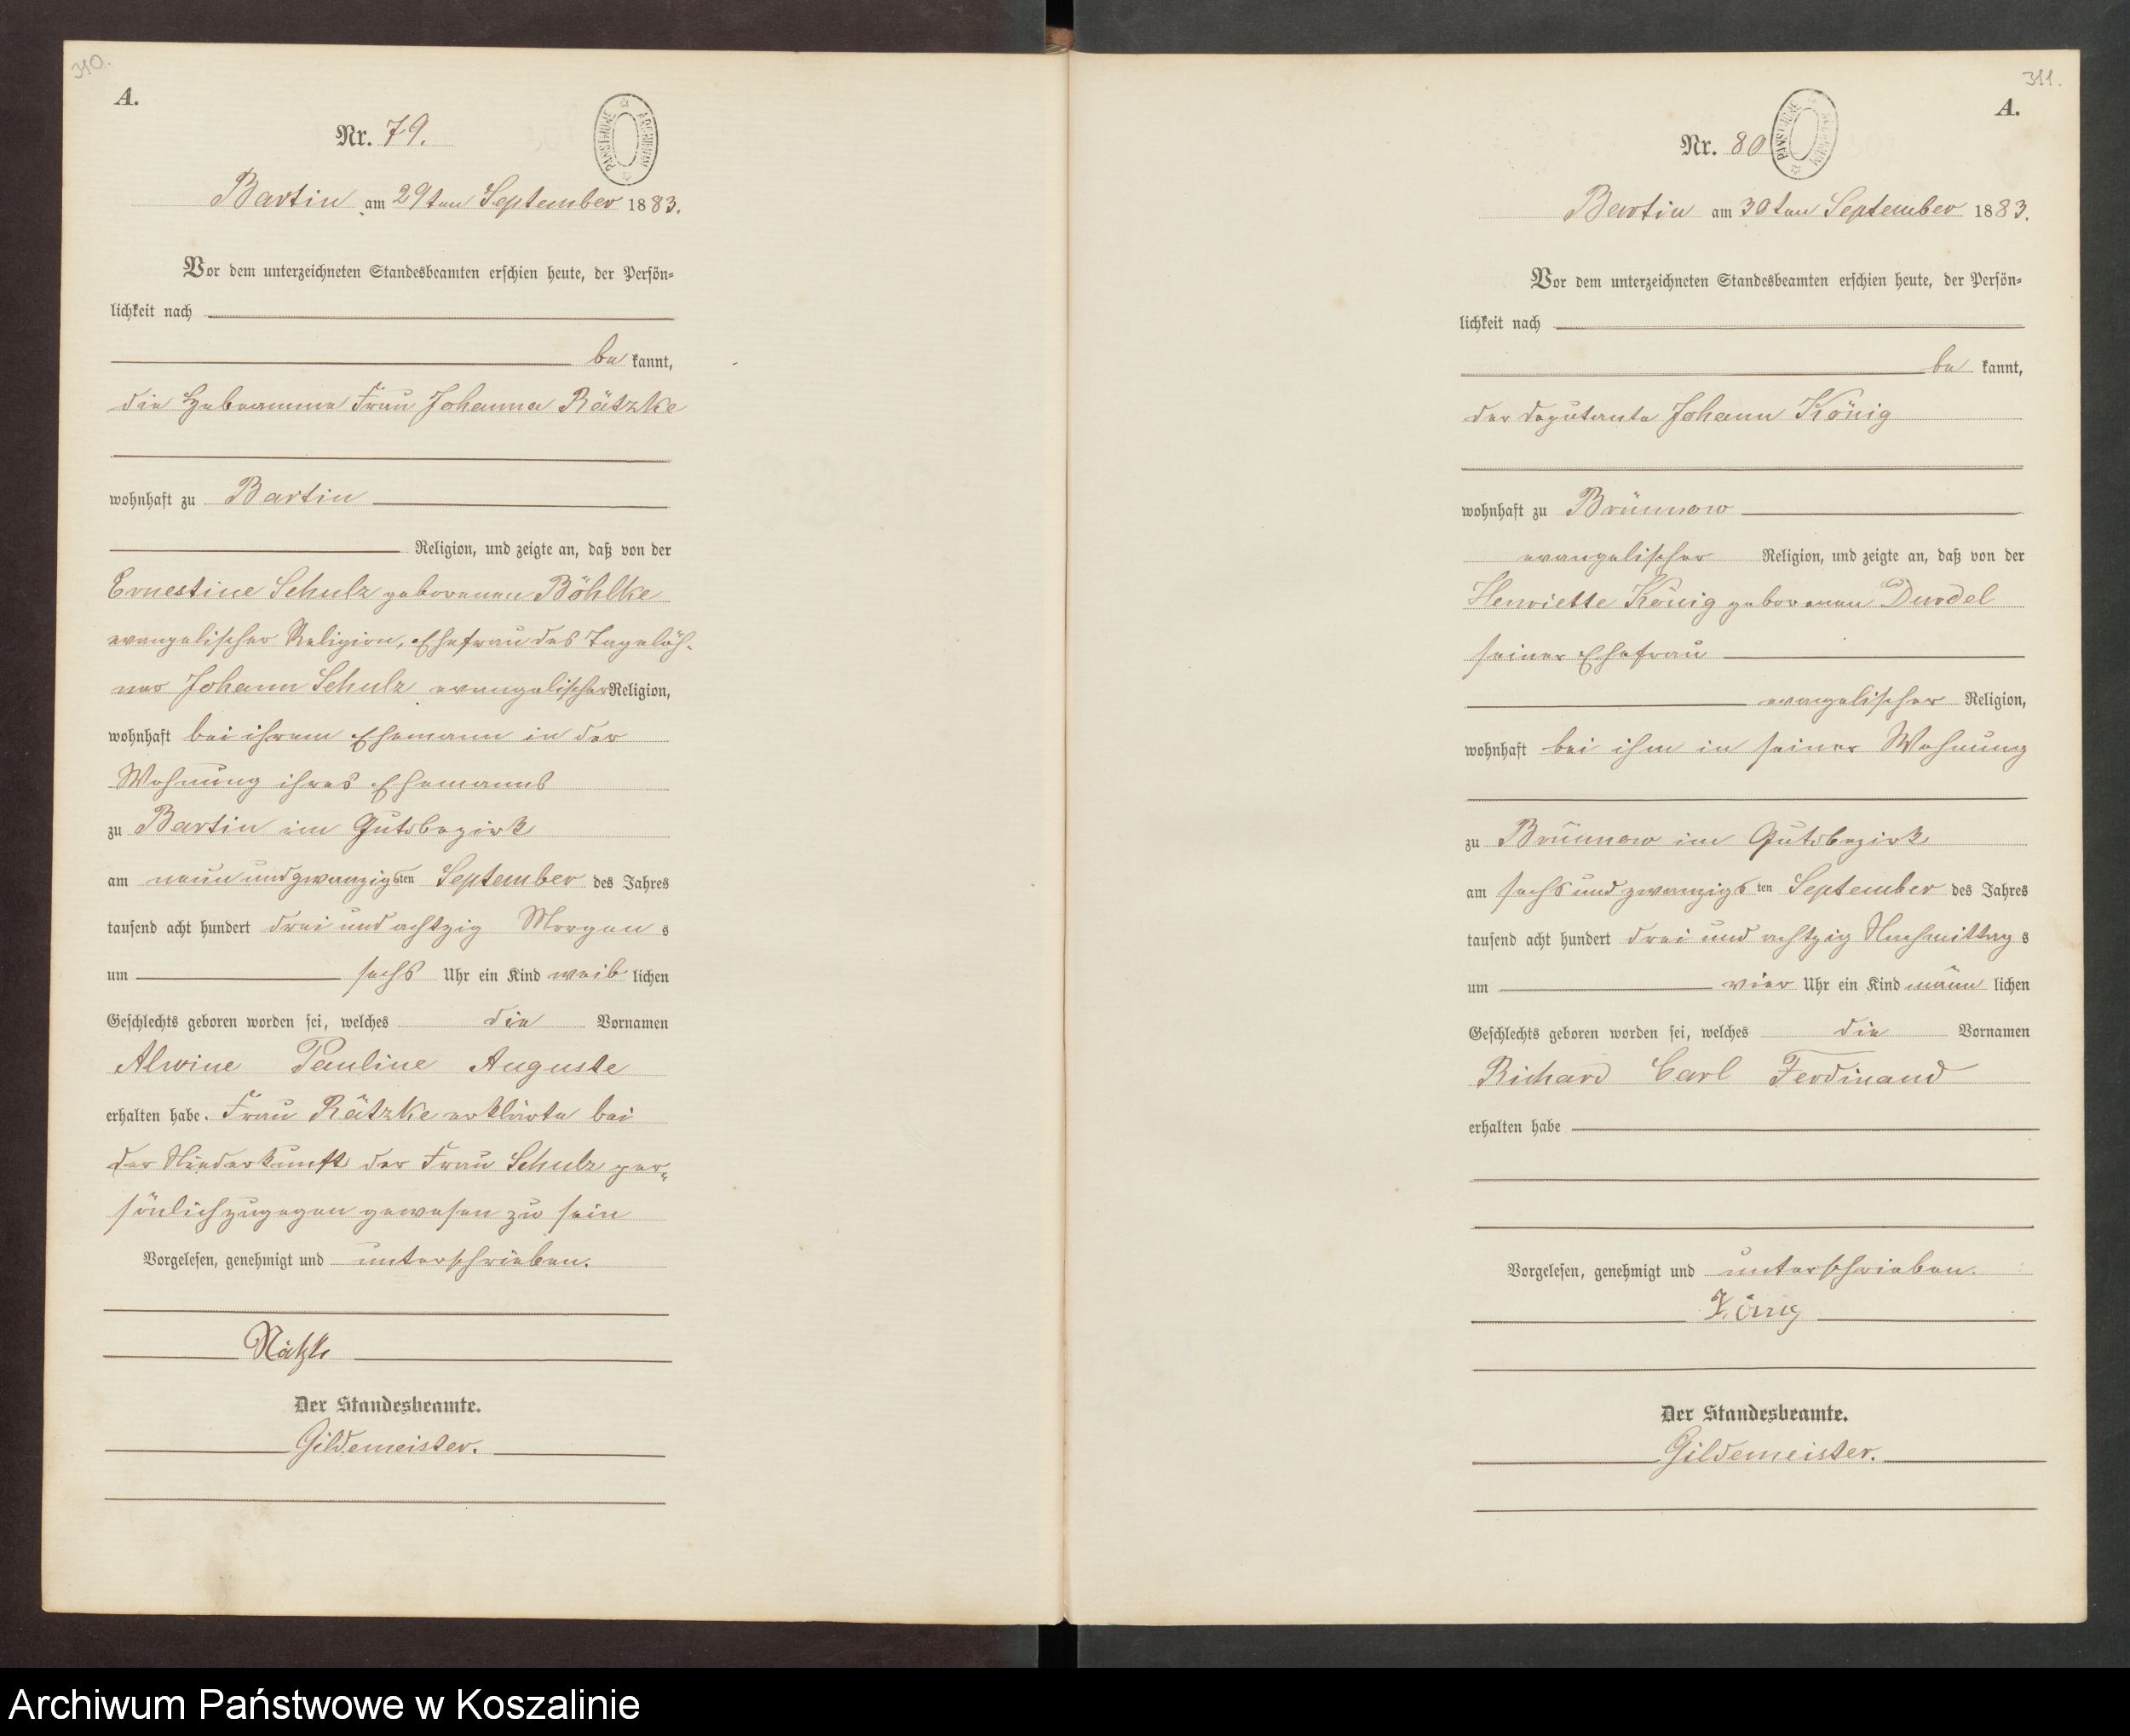 310.
A.
Nr. 79.
PAŃSTWOWE ARCHIWUM
Bartin am 29ten September 1883.
Vor dem unterzeichneten Standesbeamten erschien heute, der Persön-
lichkeit nach
be kannt,
die Hebeamme Frau Johanna Rätzke
wohnhaft zu Bartin
Religion, und zeigte an, daß von der
Ernestine Schulz geborenen Böhlke
evangelischer Religion, Ehefrau des Tagelöh-
ner Johann Schulz evangelischer Religion,
wohnhaft bei ihrem Ehemann in der
Wohnung ihres Ehemanns
zu Bartin im Gutsbezirk
am neun und zwanzigsten September des Jahres
tausend acht hundert drei und achtzig Morgens
um sechs Uhr ein Kind weib lichen
Geschlechts geboren worden sei, welches die Vornamen
Alwine Pauline Auguste
erhalten habe. Frau Rätzke erklärte bei
der Niederkunft der Frau Schulz per-
sönlich zugegen gewesen zu sein
Vorgelesen, genehmigt und unterschrieben.
Rätzke
Der Standesbeamte.
Gildemeister.
311.
A.
Nr. 80
PAŃSTWOWE ARCHIWUM
Bartin am 30ten September 1883.
Vor dem unterzeichneten Standesbeamten erschien heute, der Persön-
lichkeit nach
be kannt,
der Deputante Johann König
wohnhaft zu Brünnow
evangelischer Religion, und zeigte an, daß von der
Henriette König geborenen Durdel
seiner Ehefrau
evangelischer Religion,
wohnhaft bei ihm in seiner Wohnung
zu Brünnow im Gutsbezirk
am sechs und zwanzigsten September des Jahres
tausend acht hundert drei und achtzig Nachmittags
um vier Uhr ein Kind männ lichen
Geschlechts geboren worden sei, welches die Vornamen
Richard Carl Ferdinand
erhalten habe
Vorgelesen, genehmigt und unterschrieben.
König
Der Standesbeamte.
Gildemeister.
Archiwum Państwowe w Koszalinie